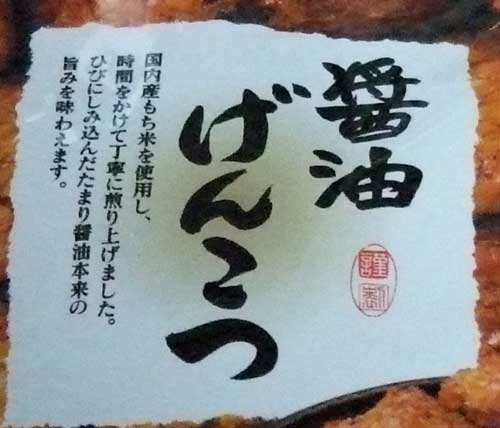 醤油
げんこつ
謹製
国内産もち米を使用し、
時間をかけて丁寧に煎り上げました。
ひびにしみ込んだたまり醤油本来の
旨みを味わえます。